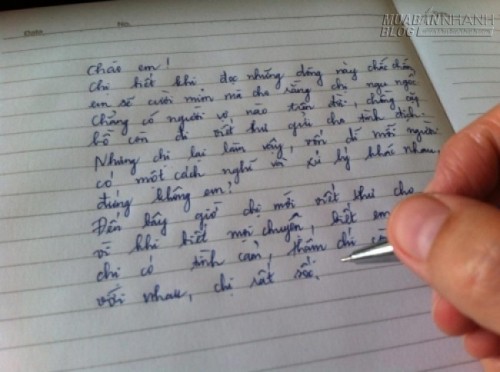 MUABANNHANH
BLOG
Date No.
Chào em!
Chị biết khi đọc những dòng này chắc chắn
em sẽ cười mỉm mà cho rằng chị ngu ngốc
Chẳng có người vợ nào trên đời, chồng
bồ còn đi viết thư gửi cho tình địch.
Nhưng chị lại làm vậy, vốn dĩ mỗi người
có một cách nghĩ và xử lý khác nhau
đúng không em?
Đến bây giờ chị mới viết thư cho
vì khi biết mọi chuyện, biết em
chị có tình cảm, thậm chí
với nhau, chị rất sốc.